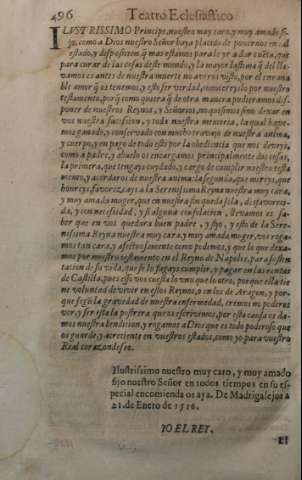 496 Teatro Eclesiastico
ILVSTRISSIMO Principe, nuestro muy caro, y muy amado fi-
jo, como a Dios nuestro Señor haya placido de ponernos en tal
estado, y disposicion, q̃ mas estamos para le yr a dar cuēta, que
para curar de las cosas deste mundo, y la mayor lastima q̃ del lle-
vamos es antes de nuestra muerte no averos visto, por el entraña
ble amor q̃ os tenemos, y esto ser verdad, conocereyslo por nuestro
testamento, porq̃ como quiera q̃ de otra manera pudieramos dis-
poner de nuestros Reynos, y Señorios, no quisimos sino dexar en
vos nuestra sucession, y toda nuestra memoria, la qual have-
mos ganado, y conservado con mucho travajo de nuestra anima,
y cuerpo, y en pago de todo esto por la obediencia que nos deveys,
como a padre, y abuelo os encargamos principalmente dos cosas,
la primera, que tengays cuydado, y cargo de cumplir nuestro testa
mento, y acordaros de nuestra anima: la segunda, que mireys, que
honreys, favorezcays a la Serenissima Reyna nuestra muy cara,
y muy amada muger, que en nuestra fin queda sola, desfavoreci-
da, y con necessidad, y si alguna consolacion, llevamos es sa-
ber que en vos quedara buen padre, y fijo, y esto de la Sere-
nissima Reyna nuestra muy cara, y muy amada muger, vos roga-
mos tan cara, y afectuosamente como podemos, y que lo que dexa-
mos por nuestro testamento en el Reyno de Napoles, para sosten
tacion de su vida, que se lo fagays cumplir, y pagar en las rentas
de Castilla, pues esso vos cuesta lo vno que lo otro, porque ella tie
ne voluntad de vivir en essos Reynos, o en los de Aragon, y por-
que segū la gravedad de nuestra enfermedad, creemos no poderos
ver, y ser esta la postrera que os escrivimos, por esta causa os da-
mos nuestra bendicion, y rogamos a Dios que es todo poderoso que
os guarde, y acreciente en vuestros estados, como yo para vuestro
Real corazon deseo.
Ilustrissimo nuestro muy caro, y muy amado
fijo nuestro Señor en todos tiempos en su es-
pecial encomienda os aya. De Madrigalejos a
21. de Enero de 1516.
YO EL REY.
El